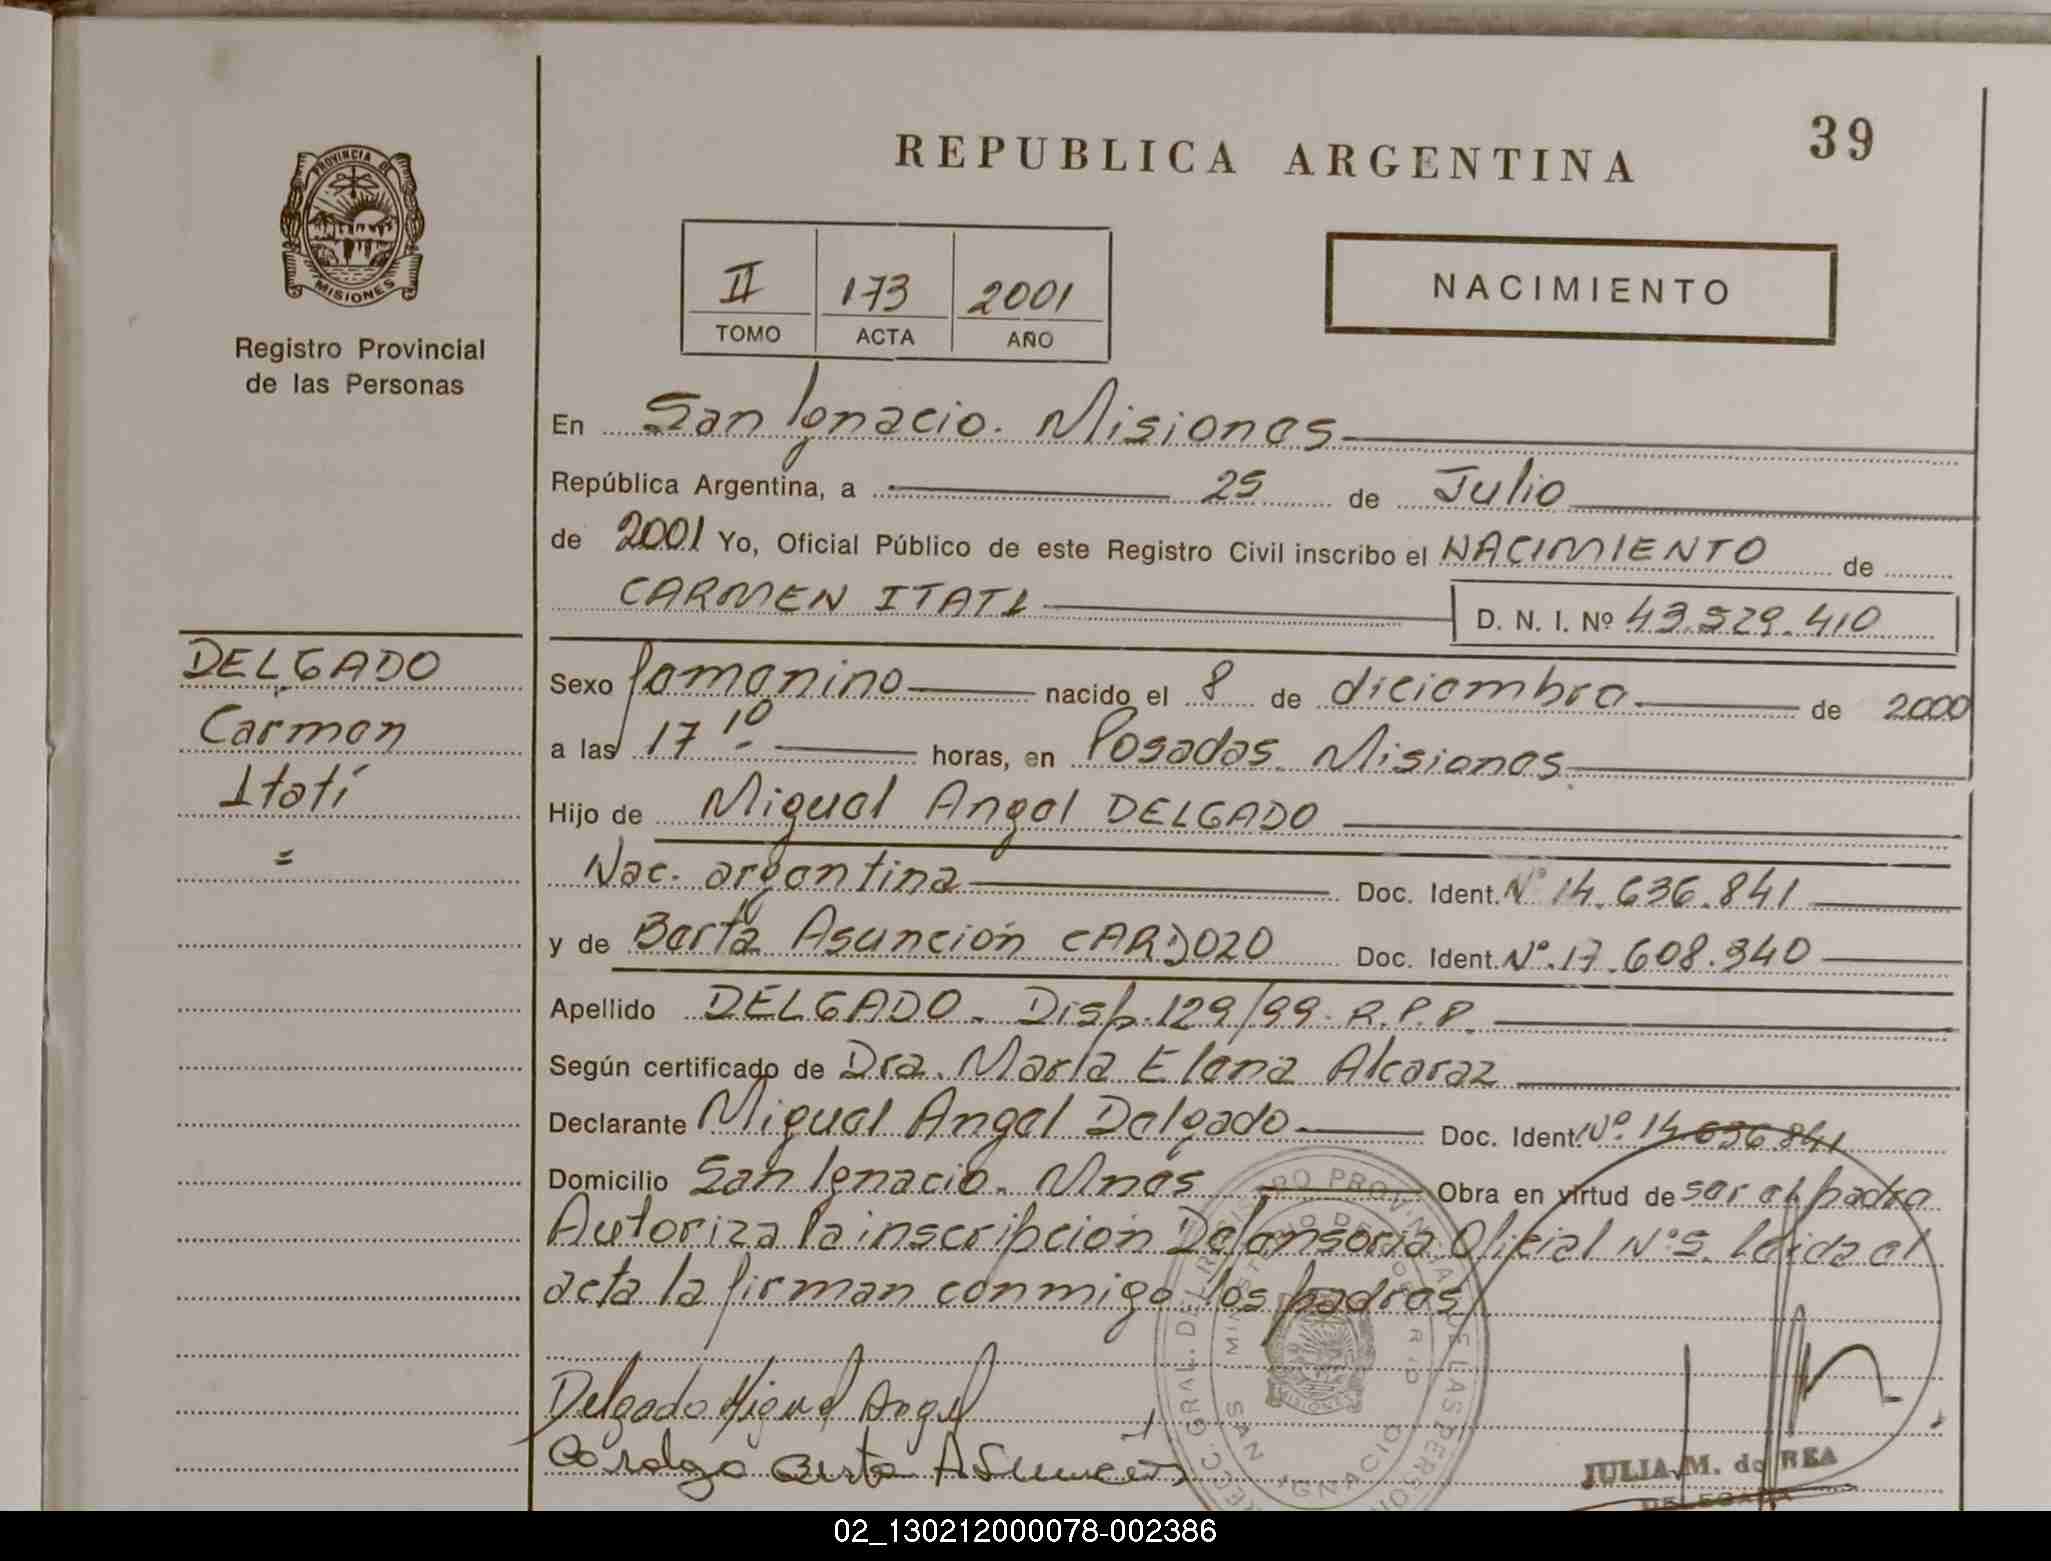 39
REPUBLICA ARGENTINA
PROVINCIA DE
MISIONES
Registro Provincial
de las Personas
II 173 2001
TOMO ACTA AÑO
NACIMIENTO
En San Ignacio. Misiones
República Argentina, a 25 de Julio
de 2001 Yo, Oficial Público de este Registro Civil inscribo el NACIMIENTO de
CARMEN ITATI D. N. I. Nº 43.529.410
DELGADO
Carmen
Itatí
=
Sexo femenino nacido el 8 de diciembre de 2000
a las 17 10 horas, en Posadas. Misiones
Hijo de Miguel Angel DELGADO
Nac. argentina Doc. Ident. Nº 14.636.841
y de Berta Asunción CARDOZO Doc. Ident. Nº. 17.608.340
Apellido DELGADO. Disp. 129/99. R.P.P.
Según certificado de Dra. María Elena Alcaraz
Declarante Miguel Angel Delgado Doc. Ident. Nº. 14.636.841
Domicilio San Ignacio. Mnes Obra en virtud de ser el padre
Autoriza la inscripción Defensoria Oficial Nº 5. Leida el
acta la firman conmigo los padres
Delgado Miguel Angel
JULIA M. de REA
DELEGADA
SAN IGNACIO
02_130212000078-002386